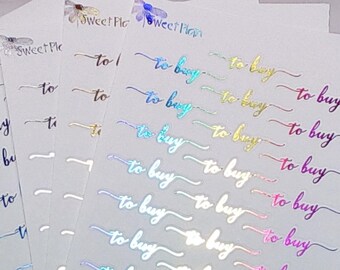 Sweet Plan
Sweet Plan
Sweet Plan
to buy
to buy
to buy
to buy
to buy
to buy
to buy
to buy
to buy
to buy
to buy
to buy
to buy
to buy
to buy
to buy
to buy
to buy